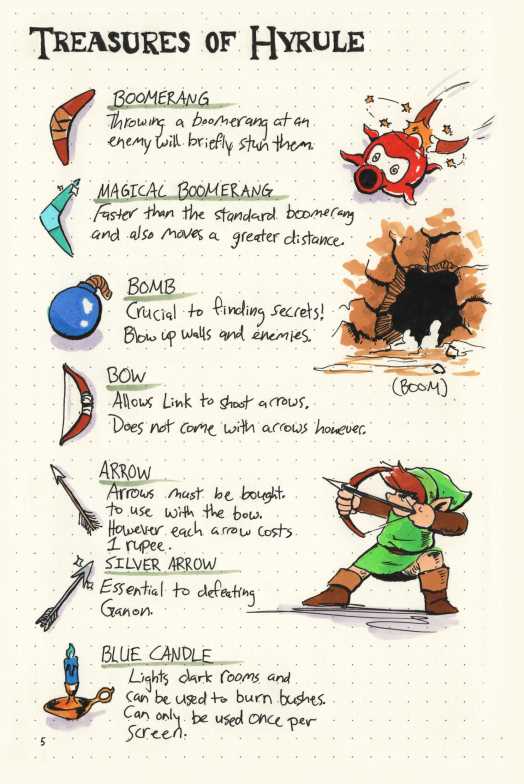 TREASURES OF HYRULE
BOOMERANG
Throwing a boomerang at an
enemy will briefly stun them.
MAGICAL BOOMERANG
Faster than the standard boomerang
and also moves a greater distance.
BOMB
Crucial to finding secrets!
Blow up walls and enemies.
(BOOM)
BOW
Allows Link to shoot arrows.
Does not come with arrows however.
ARROW
Arrows must be bought
to use with the bow.
However each arrow costs
1 rupee.
SILVER ARROW
Essential to defeating
Ganon.
BLUE CANDLE
Lights dark rooms and
can be used to burn bushes.
Can only be used once per
screen.
5